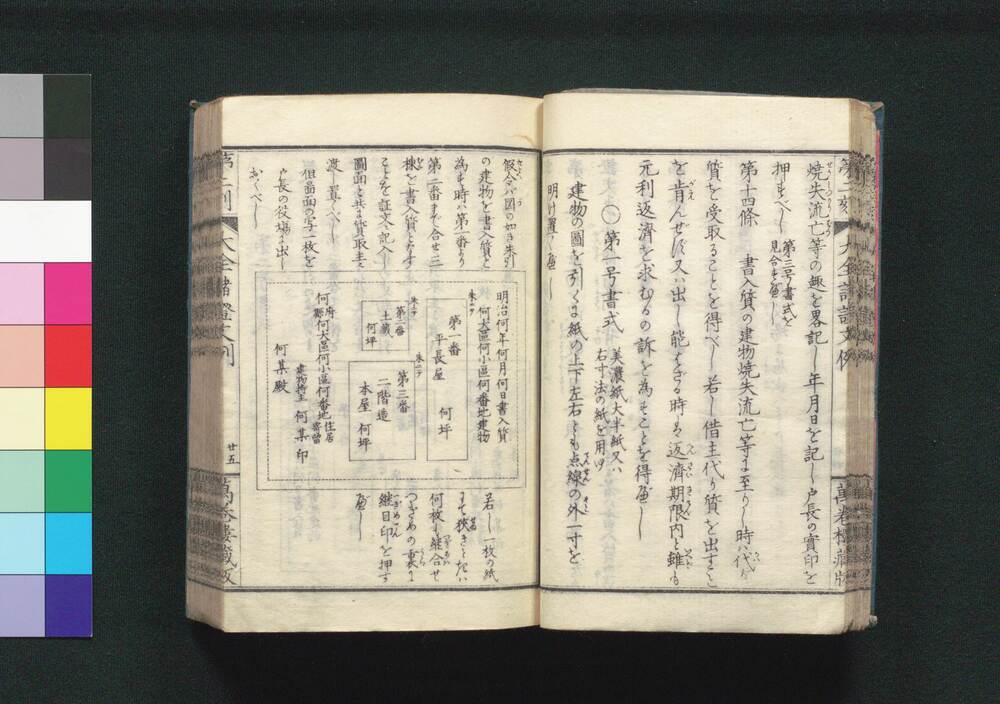 焼失流亡等の趣を畧記し年月日を記し戸長の實印を
押すべし
第三号書式を
見合すべし
第十四條 書入質の建物焼失流亡等に至りし時ハ代り
質を受取ることを得べし若し借主代り質を出すこと
を肯んぜず又ハ出し能はざる時は返濟期限内と雖も
元利返濟を求むるの訴を為すことを得べし
○第一号書式
美濃紙大半紙又ハ
右寸法の紙を用ゆ
建物の圖を引くは紙の上下左右とも点線の外一寸を
明け置くべし
假令バ圖の如き朱引
の建物を書入質と
為す時ハ第一番より
第二番まで合せ二
棟を書入質となす
ことを証文へ記入し
圖面と共に質取主へ
渡し置くべし
但畨面の写一枚を
戸長の役場に出し
おくべし
明治何年何月何日書入質
何大區何小區何番地建物
朱ニテ
第一番
平長屋 何坪
朱ニテ
第二番
土蔵
何坪
朱ニテ
第三番
二階造
本屋 何坪
府
縣
何大區何小區何番地
住居
寄留
建物持主 何某印
何某殿
若し一枚の紙
にて狭きときハ
何枚も継合せ
つぎめの裏に
継目印を押す
べし
廿五
萬巻樓藏版